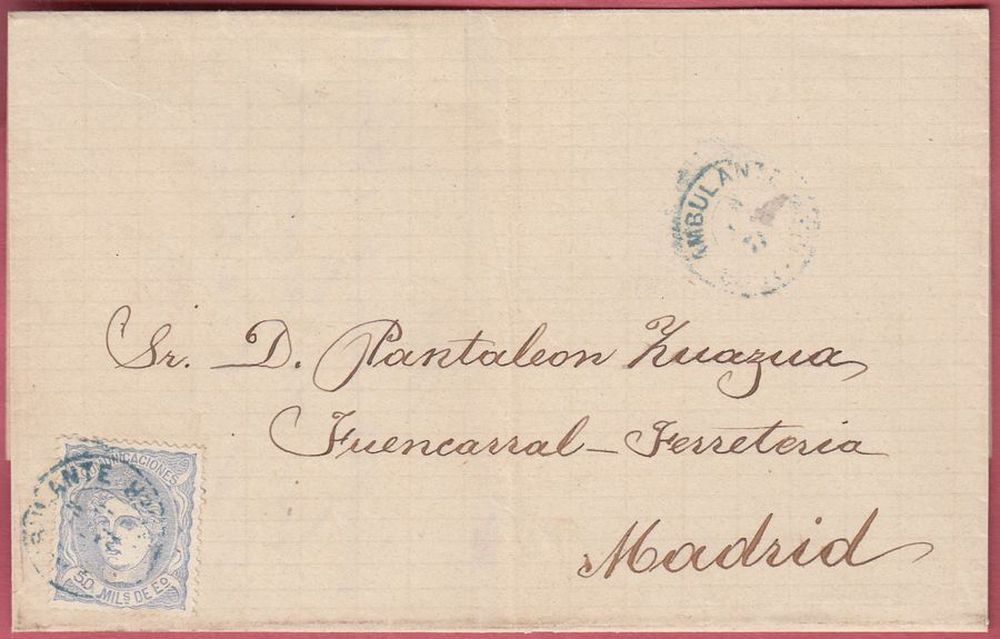 AMBULANTE
Sr. D. Pantaleon Zuazua
Fuencarral - Ferreteria
Madrid
COMUNICACIONES
50 MILS DE EO.